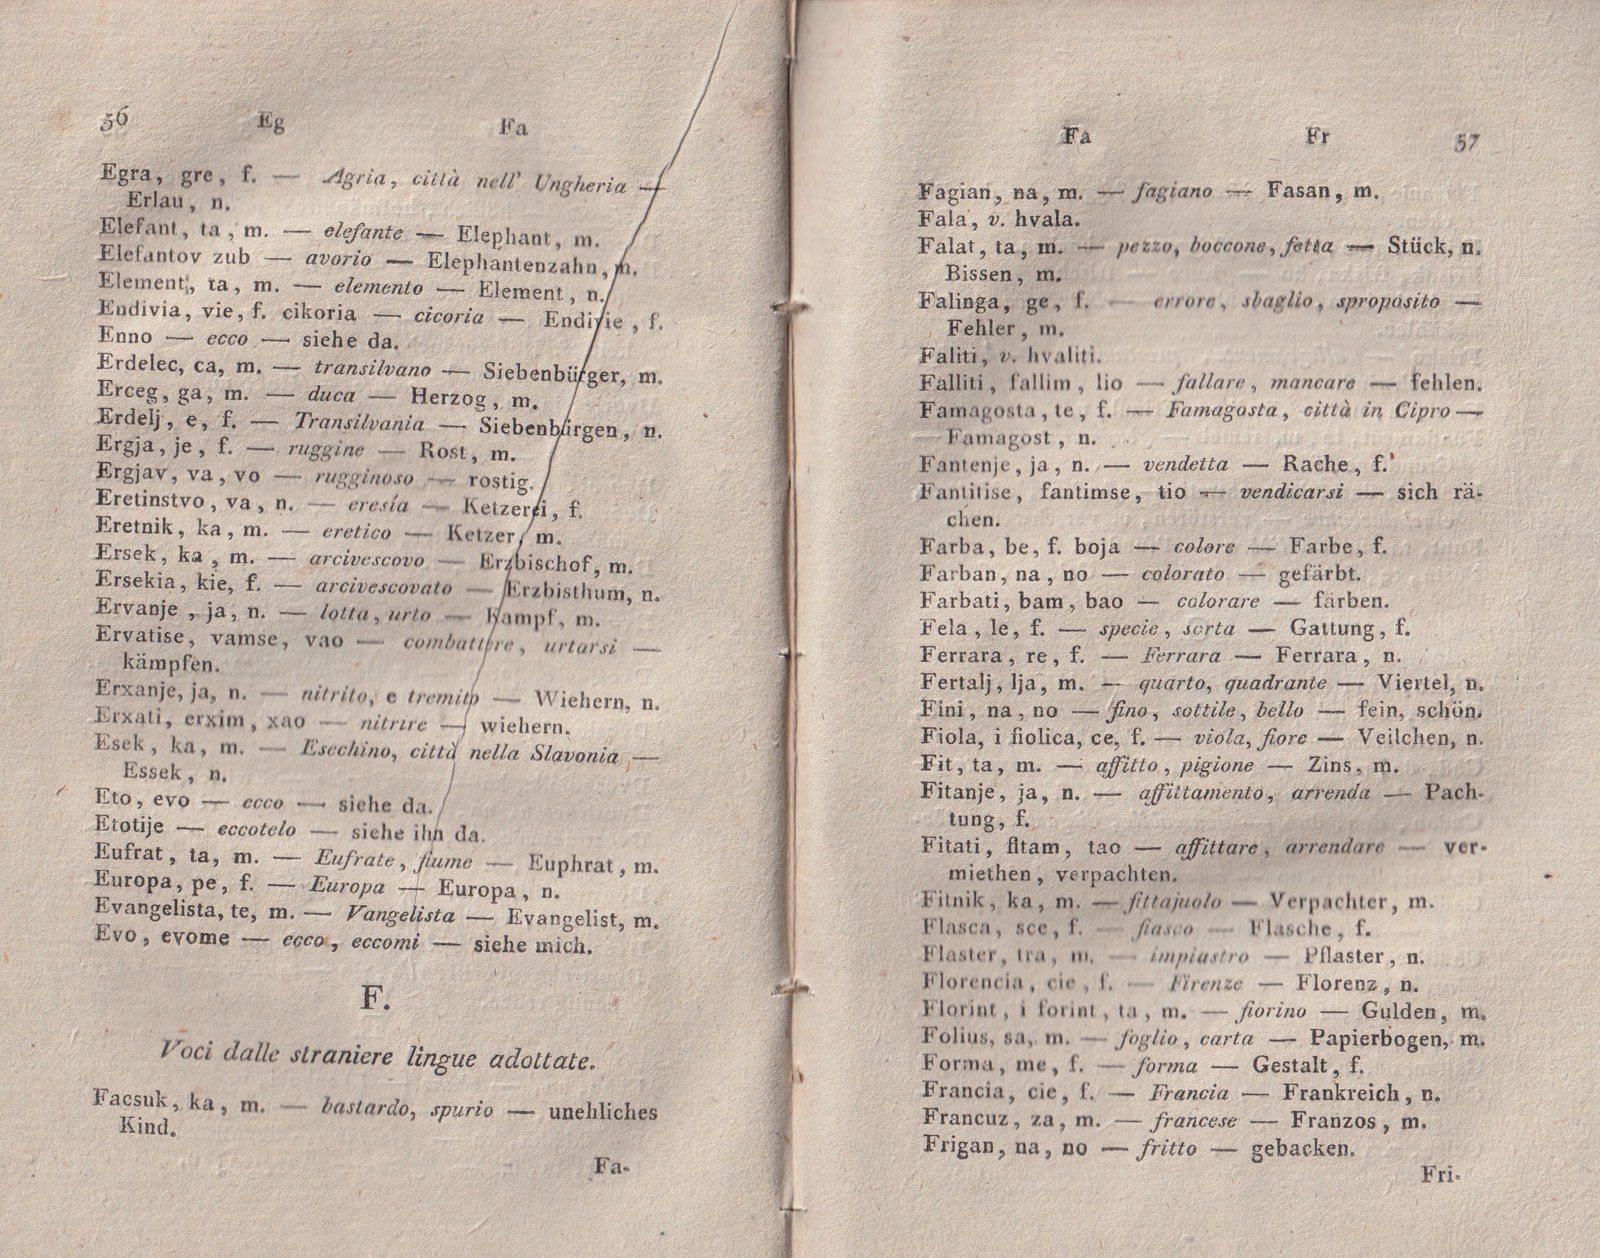 56 Eg Fa
Egra, gre, f. — Agria, città nell' Ungheria —
Erlau, n.
Elefant, ta, m. — elefante — Elephant, m.
Elefantov zub — avorio — Elephantenzahn, m.
Element, ta, m. — elemento — Element, n.
Endivia, vie, f. cikoria — cicoria — Endivie, f.
Enno — ecco — siehe da.
Erdelec, ca, m. — transilvano — Siebenbürger, m.
Erceg, ga, m. — duca — Herzog, m.
Erdelj, e, f. — Transilvania — Siebenbürgen, n.
Ergja, je, f. — ruggine — Rost, m.
Ergjav, va, vo — rugginoso — rostig.
Eretinstvo, va, n. — eresía — Ketzerei, f.
Eretnik, ka, m. — eretico — Ketzer, m.
Ersek, ka, m. — arcivescovo — Erzbischof, m.
Ersekia, kie, f. — arcivescovato — Erzbisthum, n.
Ervanje, ja, n. — lotta, urto — Kampf, m.
Ervatise, vamse, vao — combattere, urtarsi —
kämpfen.
Erxanje, ja, n. — nitrito, e tremito — Wiehern, n.
Erxati, erxim, xao — nitrire — wiehern.
Esek, ka, m. — Esecchino, città nella Slavonia —
Essek, n.
Eto, evo — ecco — siehe da.
Etotije — eccotelo — siehe ihn da.
Eufrat, ta, m. — Eufrate, fiume — Euphrat, m.
Europa, pe, f. — Europa — Europa, n.
Evangelista, te, m. — Vangelista — Evangelist, m.
Evo, evome — ecco, eccomi — siehe mich.
F.
Voci dalle straniere lingue adottate.
Facsuk, ka, m. — bastardo, spurio — unehliches
Kind.
Fa-
Fa Fr 57
Fagian, na, m. — fagiano — Fasan, m.
Fala, v. hvala.
Falat, ta, m. — pezzo, boccone, fetta — Stück, n.
Bissen, m.
Falinga, ge, f. — errore, sbaglio, sproposito —
Fehler, m.
Faliti, v. hvaliti.
Falliti, fallim, lio — fallare, mancare — fehlen.
Famagosta, te, f. — Famagosta, città in Cipro —
Famagost, n.
Fantenje, ja, n. — vendetta — Rache, f.
Fantitise, fantimse, tio — vendicarsi — sich rä-
chen.
Farba, be, f. boja — colore — Farbe, f.
Farban, na, no — colorato — gefärbt.
Farbati, bam, bao — colorare — färben.
Fela, le, f. — specie, sorta — Gattung, f.
Ferrara, re, f. — Ferrara — Ferrara, n.
Fertalj, lja, m. — quarto, quadrante — Viertel, n.
Fini, na, no — fino, sottile, bello — fein, schön.
Fiola, i fiolica, ce, f. — viola, fiore — Veilchen, n.
Fit, ta, m. — affitto, pigione — Zins, m.
Fitanje, ja, n. — affittamento, arrenda — Pach-
tung, f.
Fitati, fitam, tao — affittare, arrendare — ver-
miethen, verpachten.
Fitnik, ka, m. — fittajuolo — Verpachter, m.
Flasca, sce, f. — fiasco — Flasche, f.
Flaster, tra, m. — impiastro — Pflaster, n.
Florencia, cie, f. — Firenze — Florenz, n.
Florint, i forint, ta, m. — fiorino — Gulden, m.
Folius, sa, m. — foglio, carta — Papierbogen, m.
Forma, me, f. — forma — Gestalt, f.
Francia, cie, f. — Francia — Frankreich, n.
Francuz, za, m. — francese — Franzos, m.
Frigan, na, no — fritto — gebacken.
Fri-